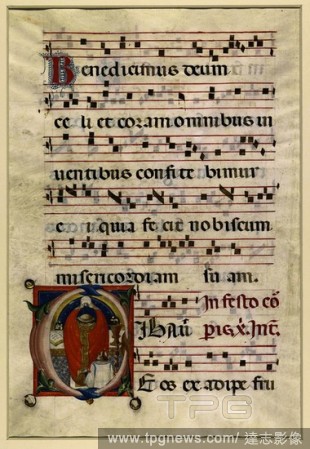 Benedicimus deum
celi et coram omnibus ui
uentibus confitebimur
ei quia fecit nobiscum
misericordiam suam.
In festo cō
Cibauit
poris x̄. Int.
eos ex adipe fru
TPG
www.tpgnews.com/達志影像